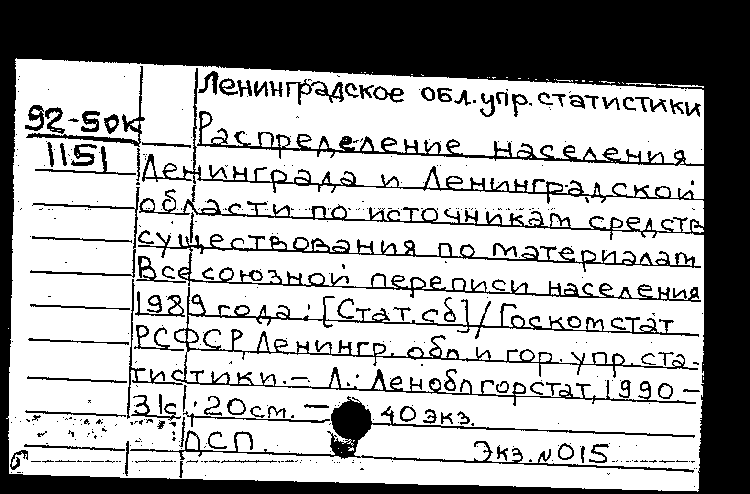 Ленинградское обл. упр. статистики
92-50к
1151
Распределение населения
Ленинграда и Ленинградской
области по источникам средств
существования по материалам
Всесоюзной переписи населения
1989 года: [Стат. сб] / Госкомстат
РСФСР, Ленингр. обл. и гор. упр. ста-
тистики. – Л.: Леноблгорстат, 1990 –
31с.; 20см. – 40 экз.
ДСП. Экз. №015
б